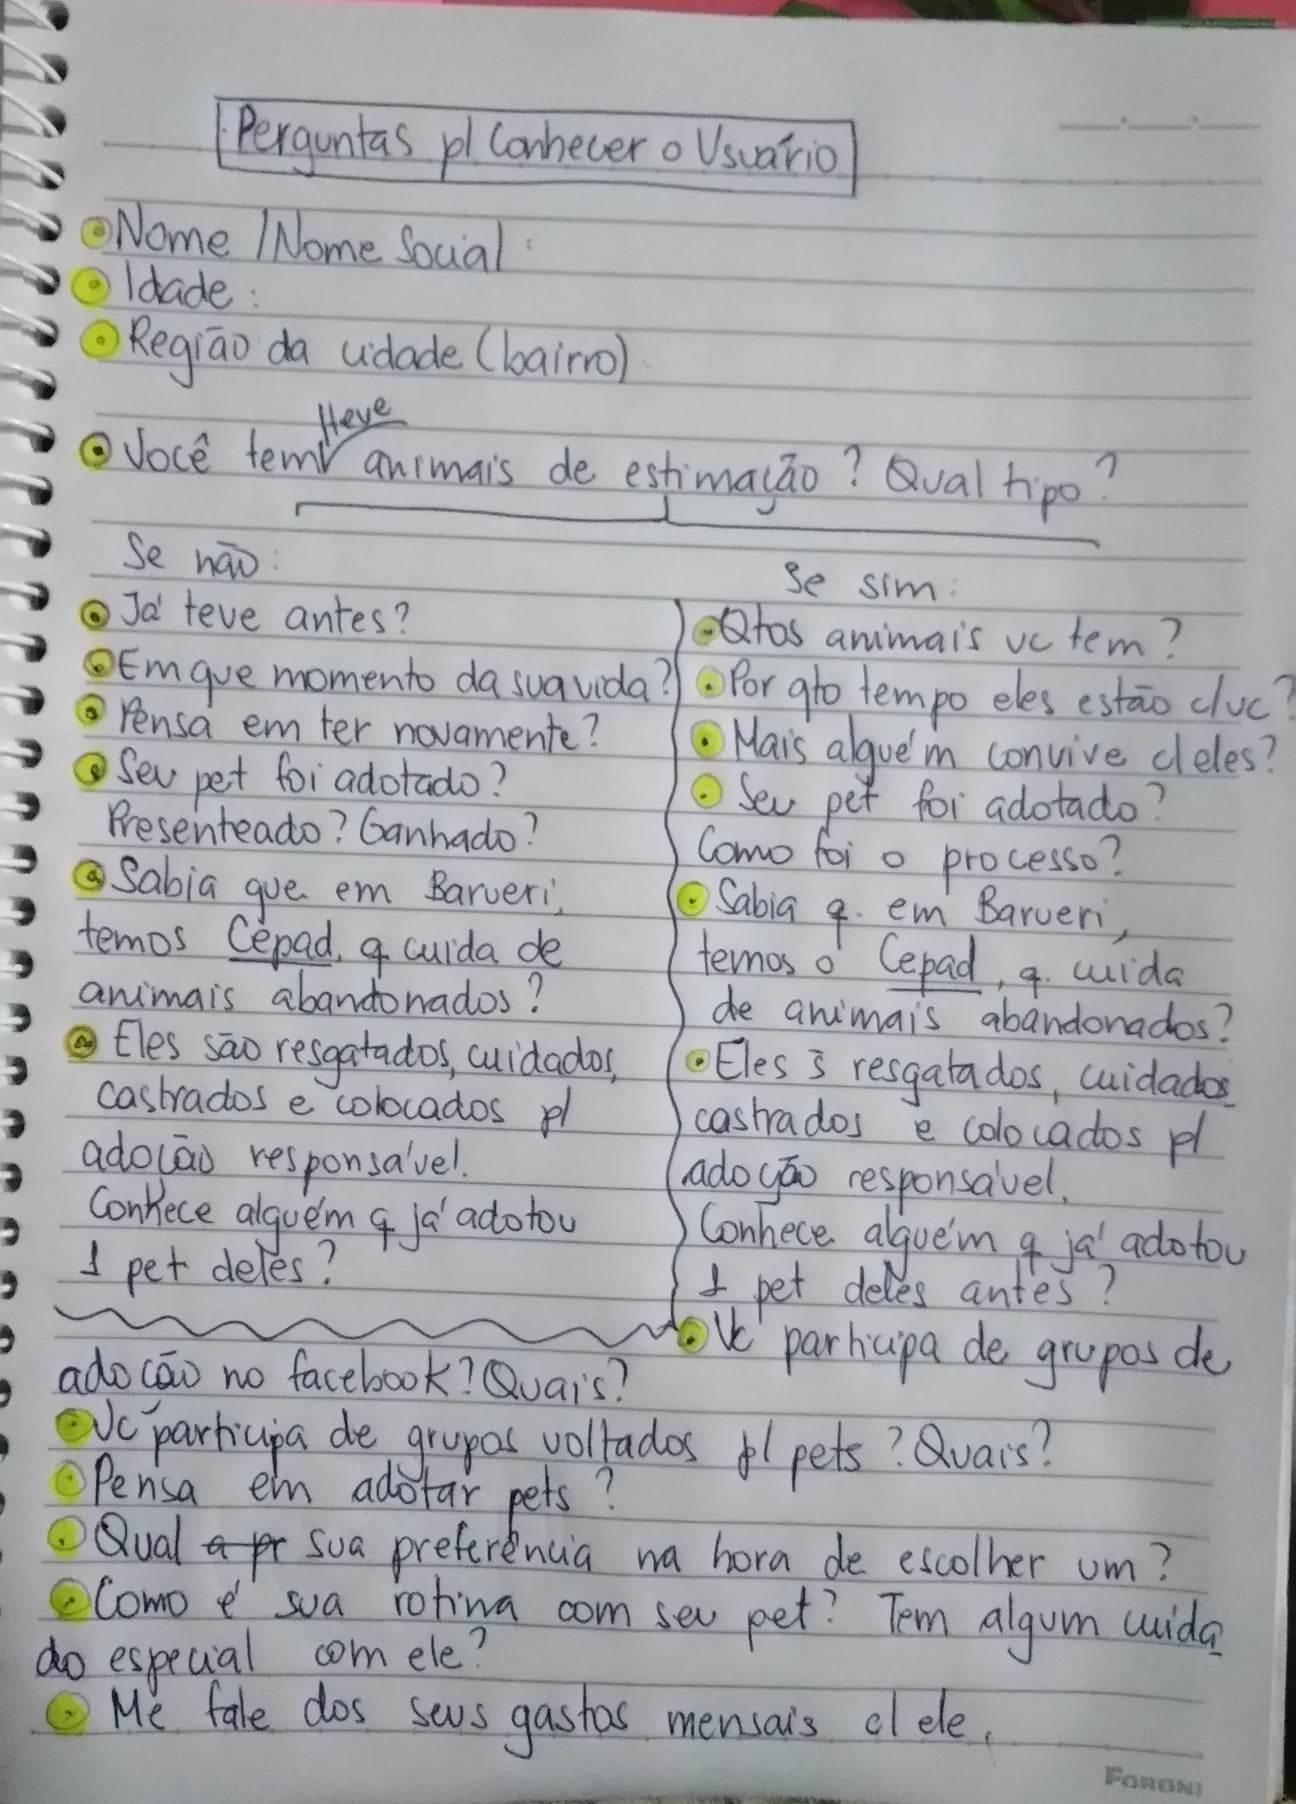 Perguntas p/ Conhecer o Usuário
Nome / Nome Social:
Idade:
Região da cidade (bairro)
/teve
Você tem animais de estimação? Qual tipo?
Se não:
Já teve antes?
Em que momento da sua vida?
Pensa em ter novamente?
Seu pet foi adotado?
Presenteado? Ganhado?
Sabia que em Barueri,
temos Cepad, q cuida de
animais abandonados?
Eles são resgatados, cuidados,
castrados e colocados p/
adoção responsável.
Conhece alguém q já adotou
1 pet deles?
Se sim:
Qtos animais vc tem?
Por qto tempo eles estão c/vc?
Mais alguém convive c/eles?
Seu pet foi adotado?
Como foi o processo?
Sabia q. em Barueri,
temos o Cepad, q. cuida
de animais abandonados?
Eles s̄ resgatados, cuidados
castrados e colocados p/
adoção responsável.
Conhece alguém q já adotou
1 pet deles antes?
Vc participa de grupos de
adoção no facebook? Quais?
Vc participa de grupos voltados p/ pets? Quais?
Pensa em adotar pets?
Qual a pr sua preferência na hora de escolher um?
Como é sua rotina com seu pet? Tem algum cuida
do especial com ele?
Me fale dos seus gastos mensais c/ ele.
FORONI